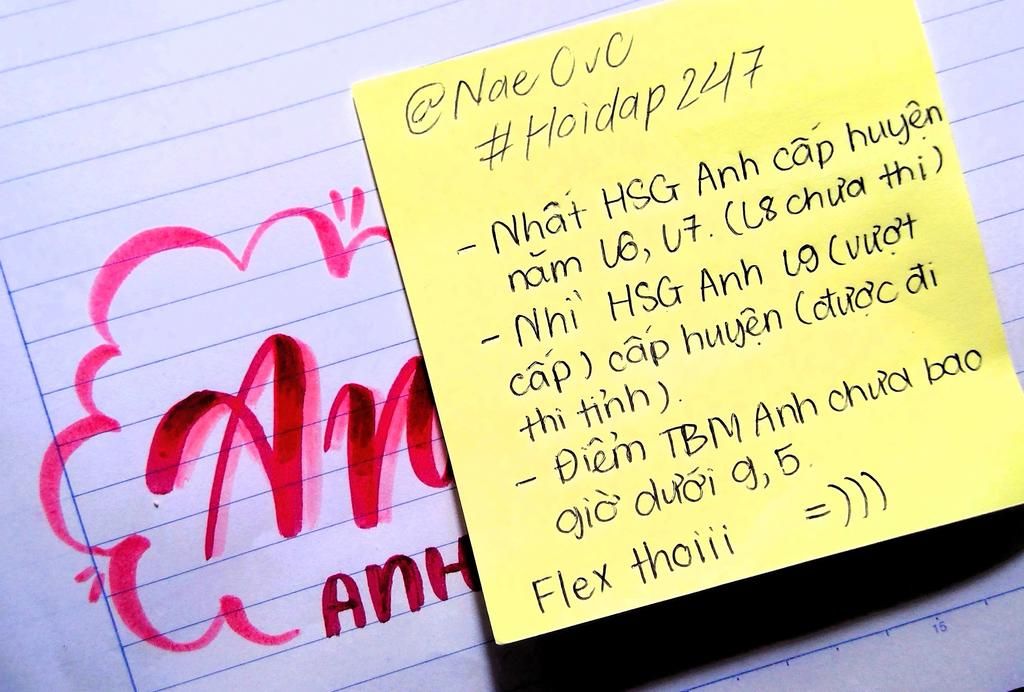 @Nae OvO
#Hoidap247
- Nhất HSG Anh cấp huyện
năm L6, L7. (L8 chưa thi)
- Nhì HSG Anh L9 (vượt
cấp) cấp huyện (được đi
thi tỉnh).
- Điểm TBM Anh chưa bao
giờ dưới 9,5.
Flex thoiii =)))
An
ANH
15